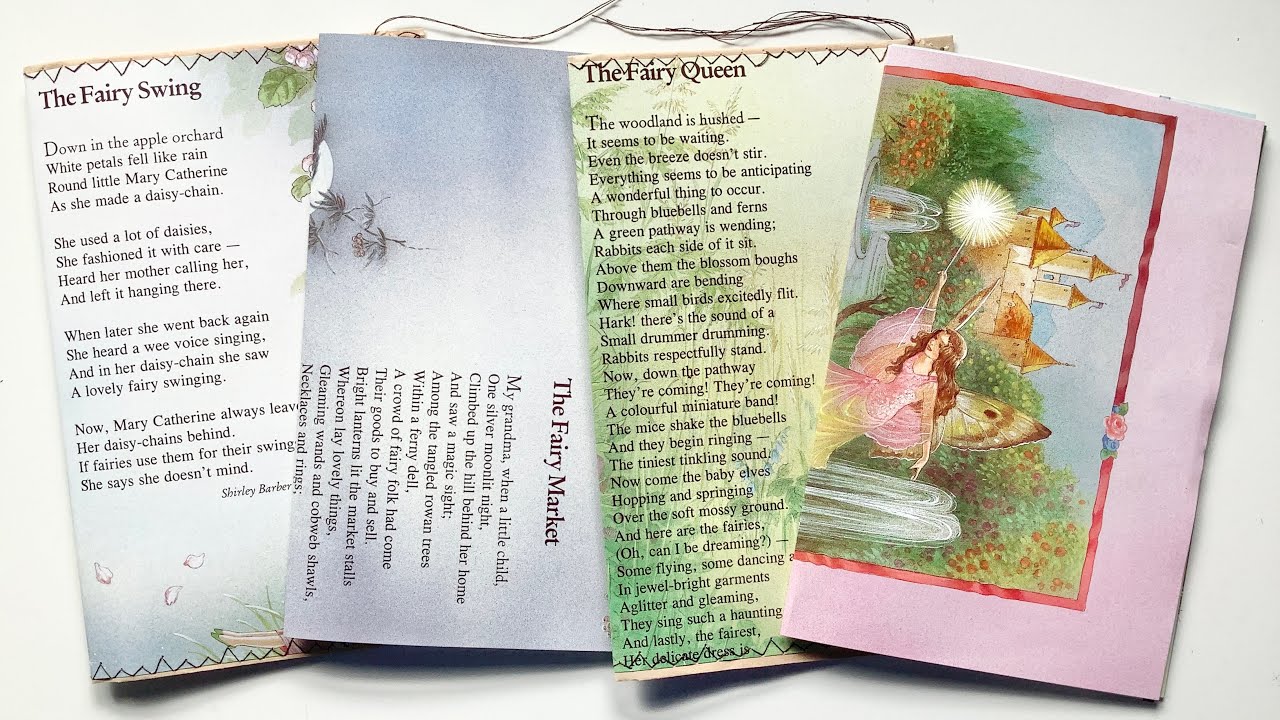 The Fairy Swing
Down in the apple orchard
White petals fell like rain
Round little Mary Catherine
As she made a daisy-chain.
She used a lot of daisies,
She fashioned it with care —
Heard her mother calling her,
And left it hanging there.
When later she went back again
She heard a wee voice singing,
And in her daisy-chain she saw
A lovely fairy swinging.
Now, Mary Catherine always leave
Her daisy-chains behind.
If fairies use them for their swing
She says she doesn't mind.
Shirley Barber
The Fairy Market
My grandma, when a little child,
One silver moonlit night,
Climbed up the hill behind her home
And saw a magic sight;
Among the tangled rowan trees
Within a ferny dell,
A crowd of fairy folk had come
Their goods to buy and sell.
Bright lanterns lit the market stalls
Whereon lay lovely things,
Gleaming wands and cobweb shawls,
Necklaces and rings;
The Fairy Queen
The woodland is hushed —
It seems to be waiting.
Even the breeze doesn't stir.
Everything seems to be anticipating
A wonderful thing to occur.
Through bluebells and ferns
A green pathway is wending;
Rabbits each side of it sit.
Above them the blossom boughs
Downward are bending
Where small birds excitedly flit.
Hark! there's the sound of a
Small drummer drumming.
Rabbits respectfully stand.
Now, down the pathway
They're coming! They're coming!
A colourful miniature band!
The mice shake the bluebells
And they begin ringing —
The tiniest tinkling sound.
Now come the baby elves
Hopping and springing
Over the soft mossy ground.
And here are the fairies,
(Oh, can I be dreaming?) —
Some flying, some dancing a
In jewel-bright garments
Aglitter and gleaming,
They sing such a haunting
And lastly, the fairest,
Her delicate dress is